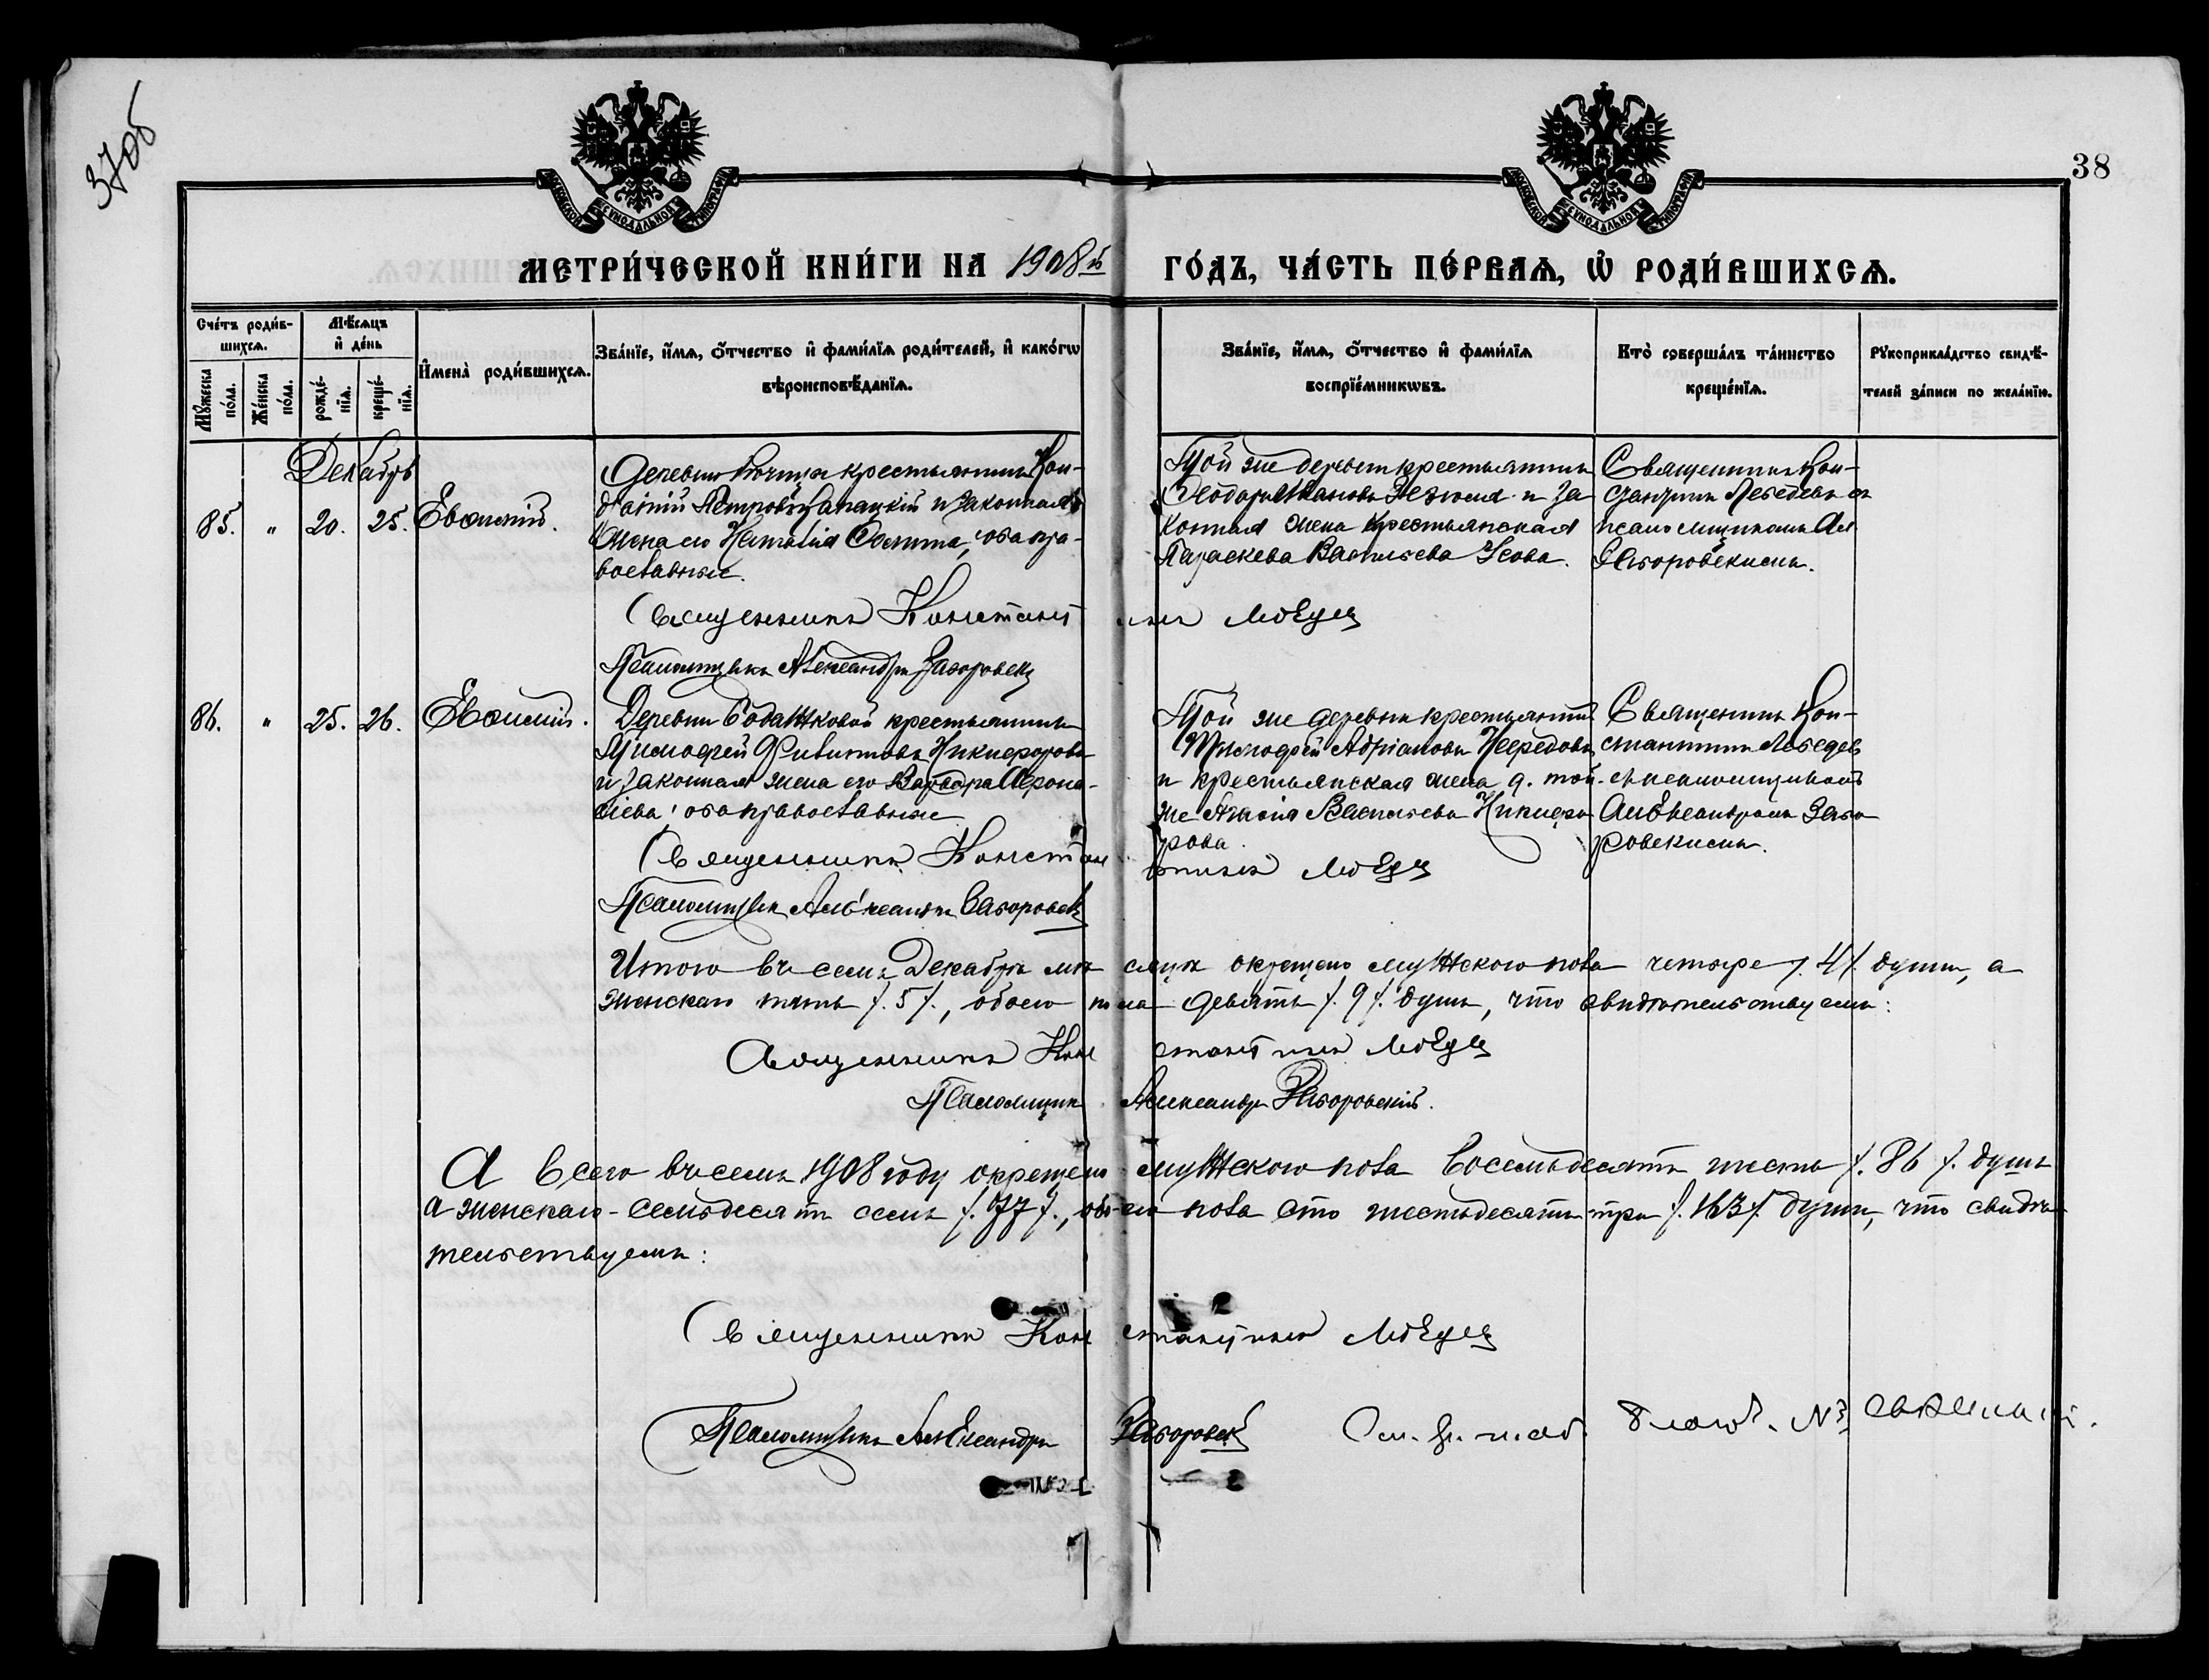 37об
38
МЕТРИ́ЧЕСКОЙ КНИ́ГИ НА 1908й ГО́ДЪ, ЧА́СТЬ ПЕ́РВАЯ, Ѡ РОДИ́ВШИХСЯ.
Сче́тъ роди́в-
шихся.
Мꙋ́жеска
по́ла.
Же́нска
по́ла.
Мѣ́сяцъ
и҆ де́нь
рожде́-
нїя.
креще́-
нїя.
И҆мена̀ роди́вшихся.
Зва́нїе, и҆́мя, ѻ҆́тчество и҆ фами́лїя роди́телей, и҆ како́гѡ
вѣроисповѣ́данїя.
Зва́нїе, и҆́мя, ѻ҆́тчество и҆ фами́лїя
воспрїе́мникѡвъ.
Кто̀ соверша́лъ та́инство
креще́нїя.
Рꙋкоприкла́дство свидѣ́-
телей за́писи по жела́нїю.
Декабрь
85. " 20. 25. Евѳимій.
Деревни крестьянинъ Кон-
дратій Петровъ и законная
жена его Наталія оба пра-
вославные.
Той же деревни крестьянинъ
Ѳеодоръ Ивановъ и за-
конная жена крестьянская
Параскева Васильева Усова.
Священникъ Кон-
стантинъ Лебедевъ съ
псаломщикомъ Ал.
Заборовскимъ.
Священникъ Константинъ Лебедевъ
Псаломщикъ Александръ Заборовскій
86. " 25. 26. Евѳимій.
Деревни крестьянинъ
Тимоѳей Никифоровъ
и законная жена его Варвара
оба православные
Той же деревни крестьянинъ
Тимоѳей Адріановъ
и крестьянская жена д. той-
же Васильева Никифо-
рова.
Священникъ Кон-
стантинъ Лебедевъ
съ псаломщикомъ
Александромъ Забо-
ровскимъ.
Священникъ Константинъ Лебедевъ
Псаломщикъ Александръ Заборовскій
Итого въ семъ Декабрѣ мѣсяцѣ окрещено мужского пола четыре /. 4 /. души, а
женскаго пять /. 5 /., обоего пола девять /. 9 /. душъ, что свидѣтельствуемъ:
Священникъ Константинъ Лебедевъ
Псаломщикъ Александръ Заборовскій.
А всего въ семъ 1908 году окрещено мужского пола восемьдесятъ шесть /. 86 /. душъ
а женскаго - семьдесятъ семь /. 77 /., обоего пола сто шестьдесятъ три /. 163 /. души, что свидѣ-
тельствуемъ:
Священникъ Константинъ Лебедевъ
Псаломщикъ Александръ Заборовскій